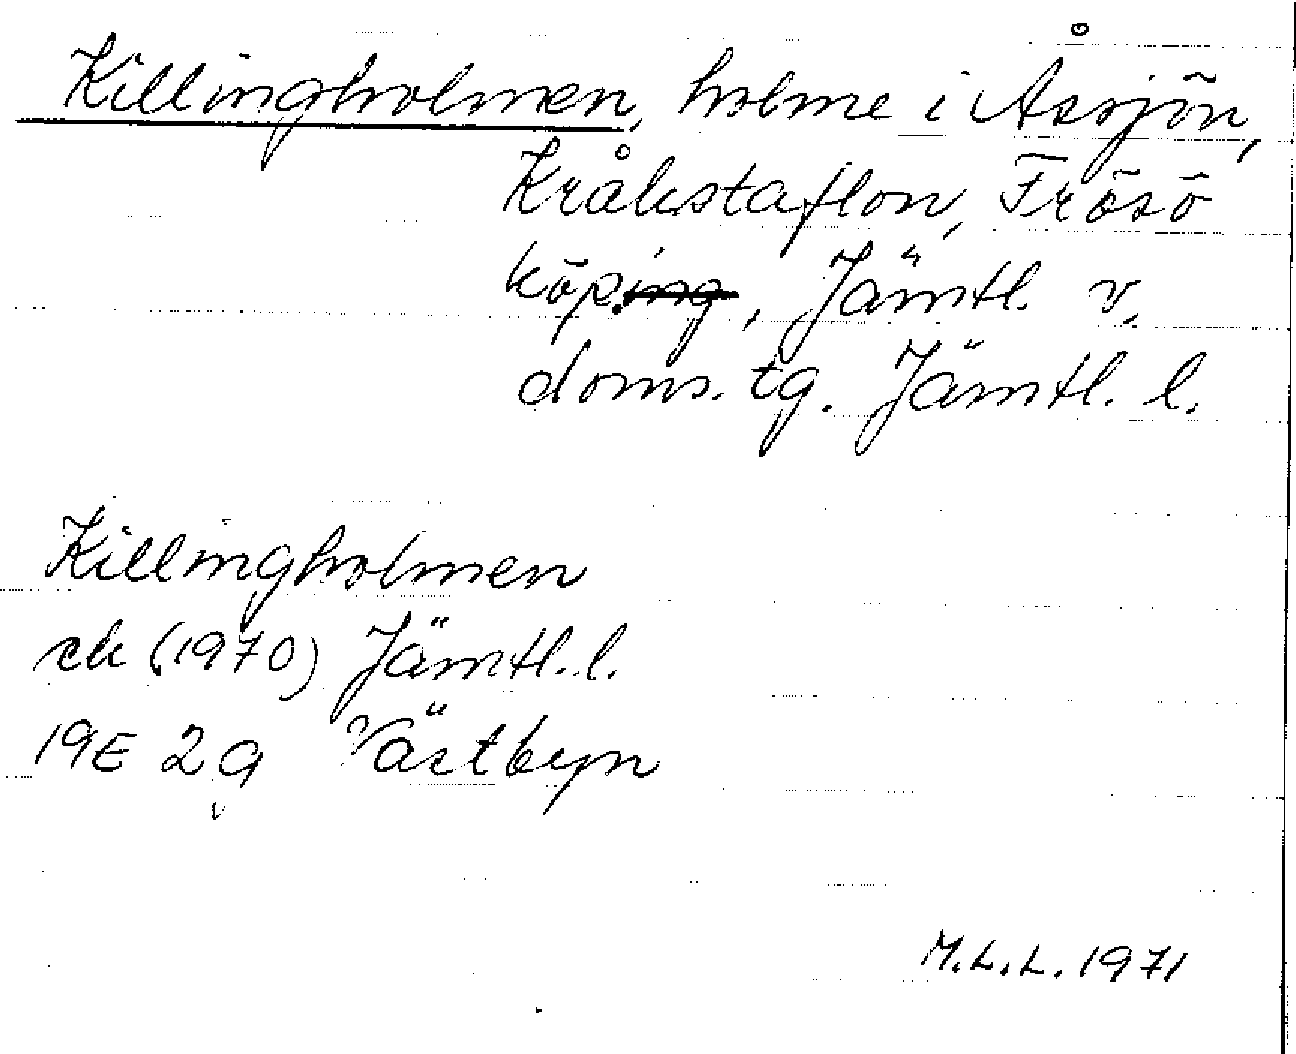 Killingholmen, holme i Åssjön,
Kråkstaflon, Frösö
köp., Jämtl. v.
doms. tg. Jämtl. l.
Killingholmen
ek (1970) Jämtl. l.
19E 2g Västbyn
M.L.L. 1971